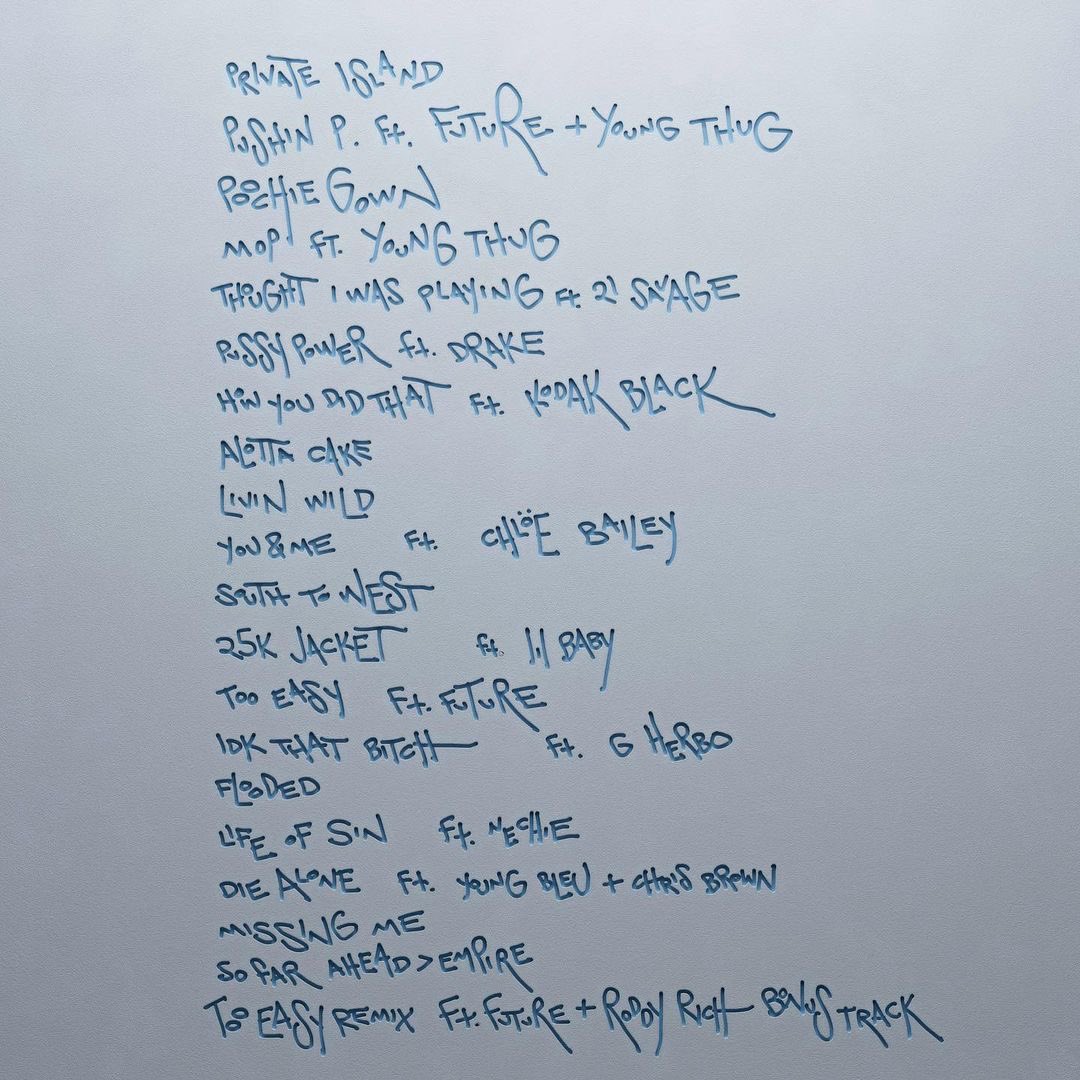 PRIVATE ISLAND
PUSHIN P. Ft. FUTURE + YOUNG THUG
POOCHIE GOWN
MOP FT. YOUNG THUG
THOUGHT I WAS PLAYING Ft. 21 SAVAGE
PUSSY POWER ft. DRAKE
HOW YOU DID THAT Ft. KODAK BLACK
ALOTTA CAKE
LIVIN WILD
YOU & ME Ft. CHLÖE BAILEY
SOUTH TO WEST
25K JACKET ft. lil BABY
TOO EASY Ft. FUTURE
IDK THAT BITCH ft. G HERBO
FLOODED
LIFE OF SIN ft. NECHIE
DIE ALONE Ft. YOUNG BLEU + CHRIS BROWN
MISSING ME
SO FAR AHEAD > EMPIRE
TOO EASY REMIX Ft. FUTURE + RODDY RICH BONUS TRACK